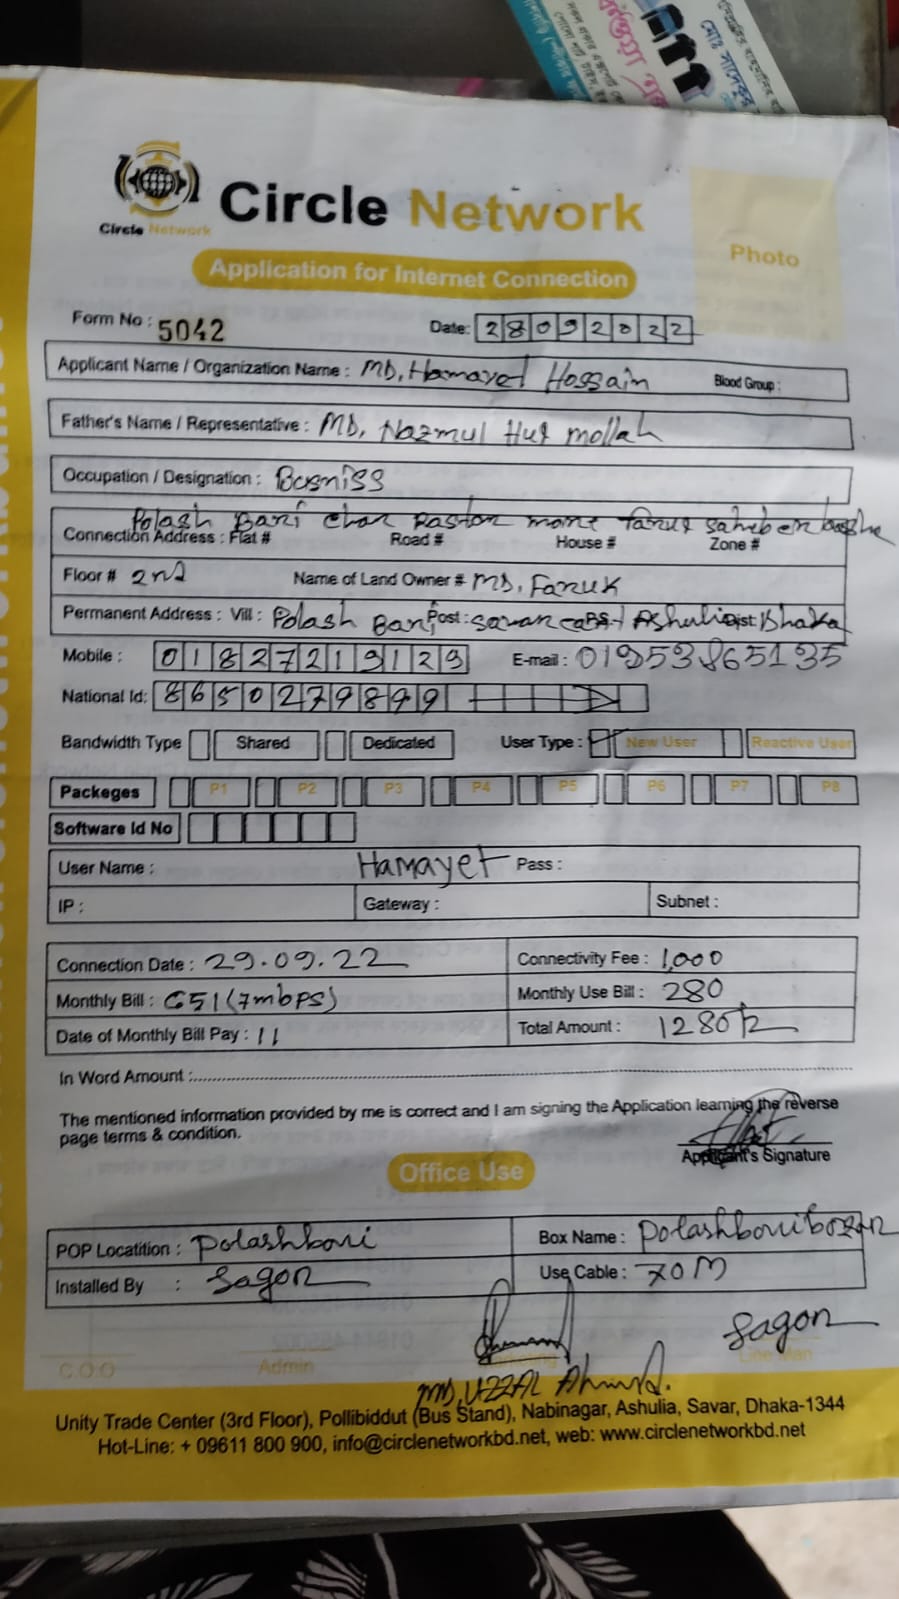 Circle Network
Circle Network
Photo
Application for Internet Connection
Form No : 5042
Date: 28092022
Applicant Name / Organization Name : MD, Hamayet Hossain Blood Group :
Father's Name / Representative : MD, Nazmul Huq mollah
Occupation / Designation : Busniss
Polash Bari char rastar more faruk saheber
Connection Address : Flat # Road # House # Zone #
Floor # 2nd Name of Land Owner # MD, Faruk
Permanent Address : Vill : Polash Bari Post : savar P.S. Ashulia Dist: Dhaka
Mobile : 01827219129 E-mail : 01953865135
National Id: 8650279899
Bandwidth Type Shared Dedicated User Type : New User Reactive User
Packeges P1 P2 P3 P4 P5 P6 P7 P8
Software Id No
User Name : Hamayet Pass :
IP : Gateway : Subnet :
Connection Date : 29.09.22 Connectivity Fee : 1,000
Monthly Bill : 651 (7mbps) Monthly Use Bill : 280
Date of Monthly Bill Pay : 11 Total Amount : 1280
In Word Amount :
The mentioned information provided by me is correct and I am signing the Application learning the reverse
page terms & condition.
Applicant's Signature
Office Use
POP Locatition : Polashbari Box Name : Polashbari
Installed By : Sagor Use Cable : 70M
Sagor
C.O.O Admin Marketing Line Man
MD, UZZAL Ahmed.
Unity Trade Center (3rd Floor), Pollibiddut (Bus Stand), Nabinagar, Ashulia, Savar, Dhaka-1344
Hot-Line: + 09611 800 900, info@circlenetworkbd.net, web: www.circlenetworkbd.net